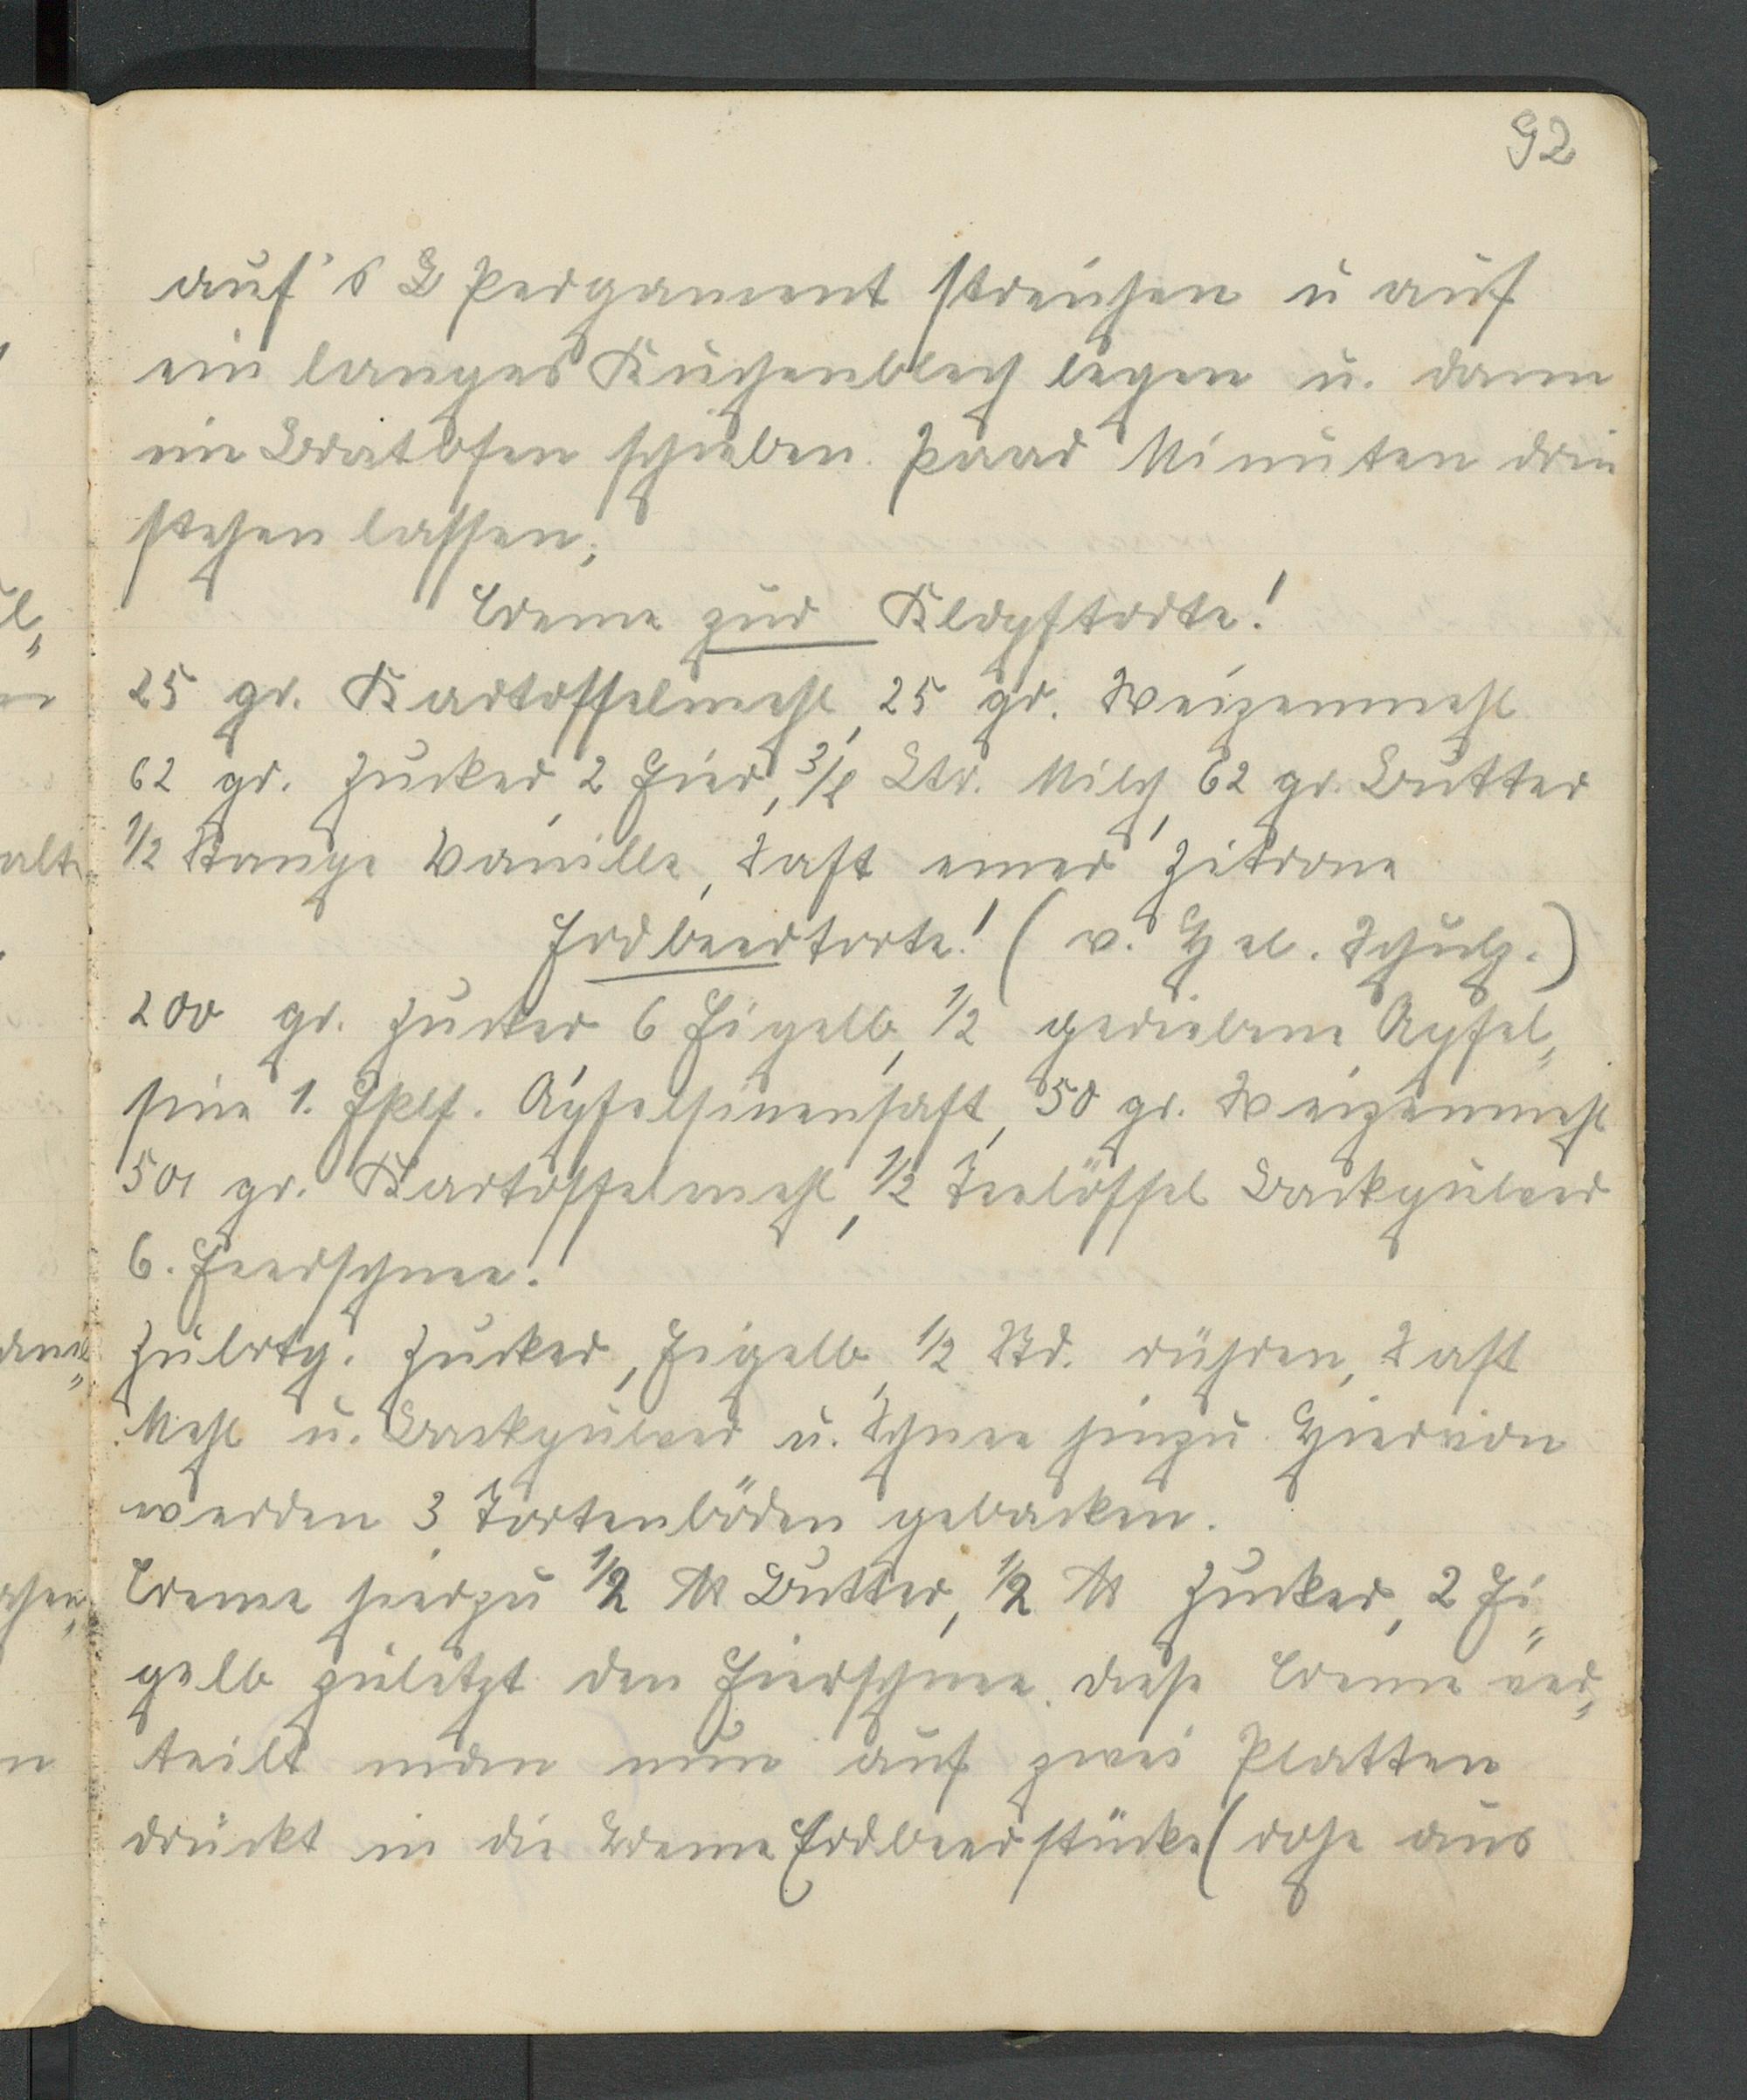 92
auf's Pergament streichen u auf
ein langes Kuchenblech legen u. dann
im Bratofen schieben. Paar Minuten drin
stehen lassen,
Creme zur Klopftorte!
25 gr. Kartoffelmehl, 25 gr. Weizenmehl
62 gr. Zucker, 2 Eier, 3/8 Ltr. Milch, 62 gr. Butter
1/2 Stange Vanille, Saft einer Zitrone
Erdbeertorte! (v. Hel. Schulz.)
200 gr. Zucker 6 Eigelb, 1/2 geriebene Apfel„
sine 1. Esslf. Apfelsinensaft, 50 gr. Weizenmehl
50 gr. Kartoffelmehl, 1/2 Teelöffel Backpulver
6. Eierschnee.
Zubrtg. Zucker, Eigelb, 1/2 Std. rühren, Saft
Mehl u. Backpulver u. Schnee hinzu. Hiervon
werden 3 Tortenböden gebacken.
Creme hierzu 1/2 ℔ Butter, 1/2 ℔ Zucker, 2 Ei„
gelb zuletzt den Eierschnee. diese Creme ver„
teilt man nun auf zwei Platten
drückt in die Creme Erdbeerstücke (rohe aus